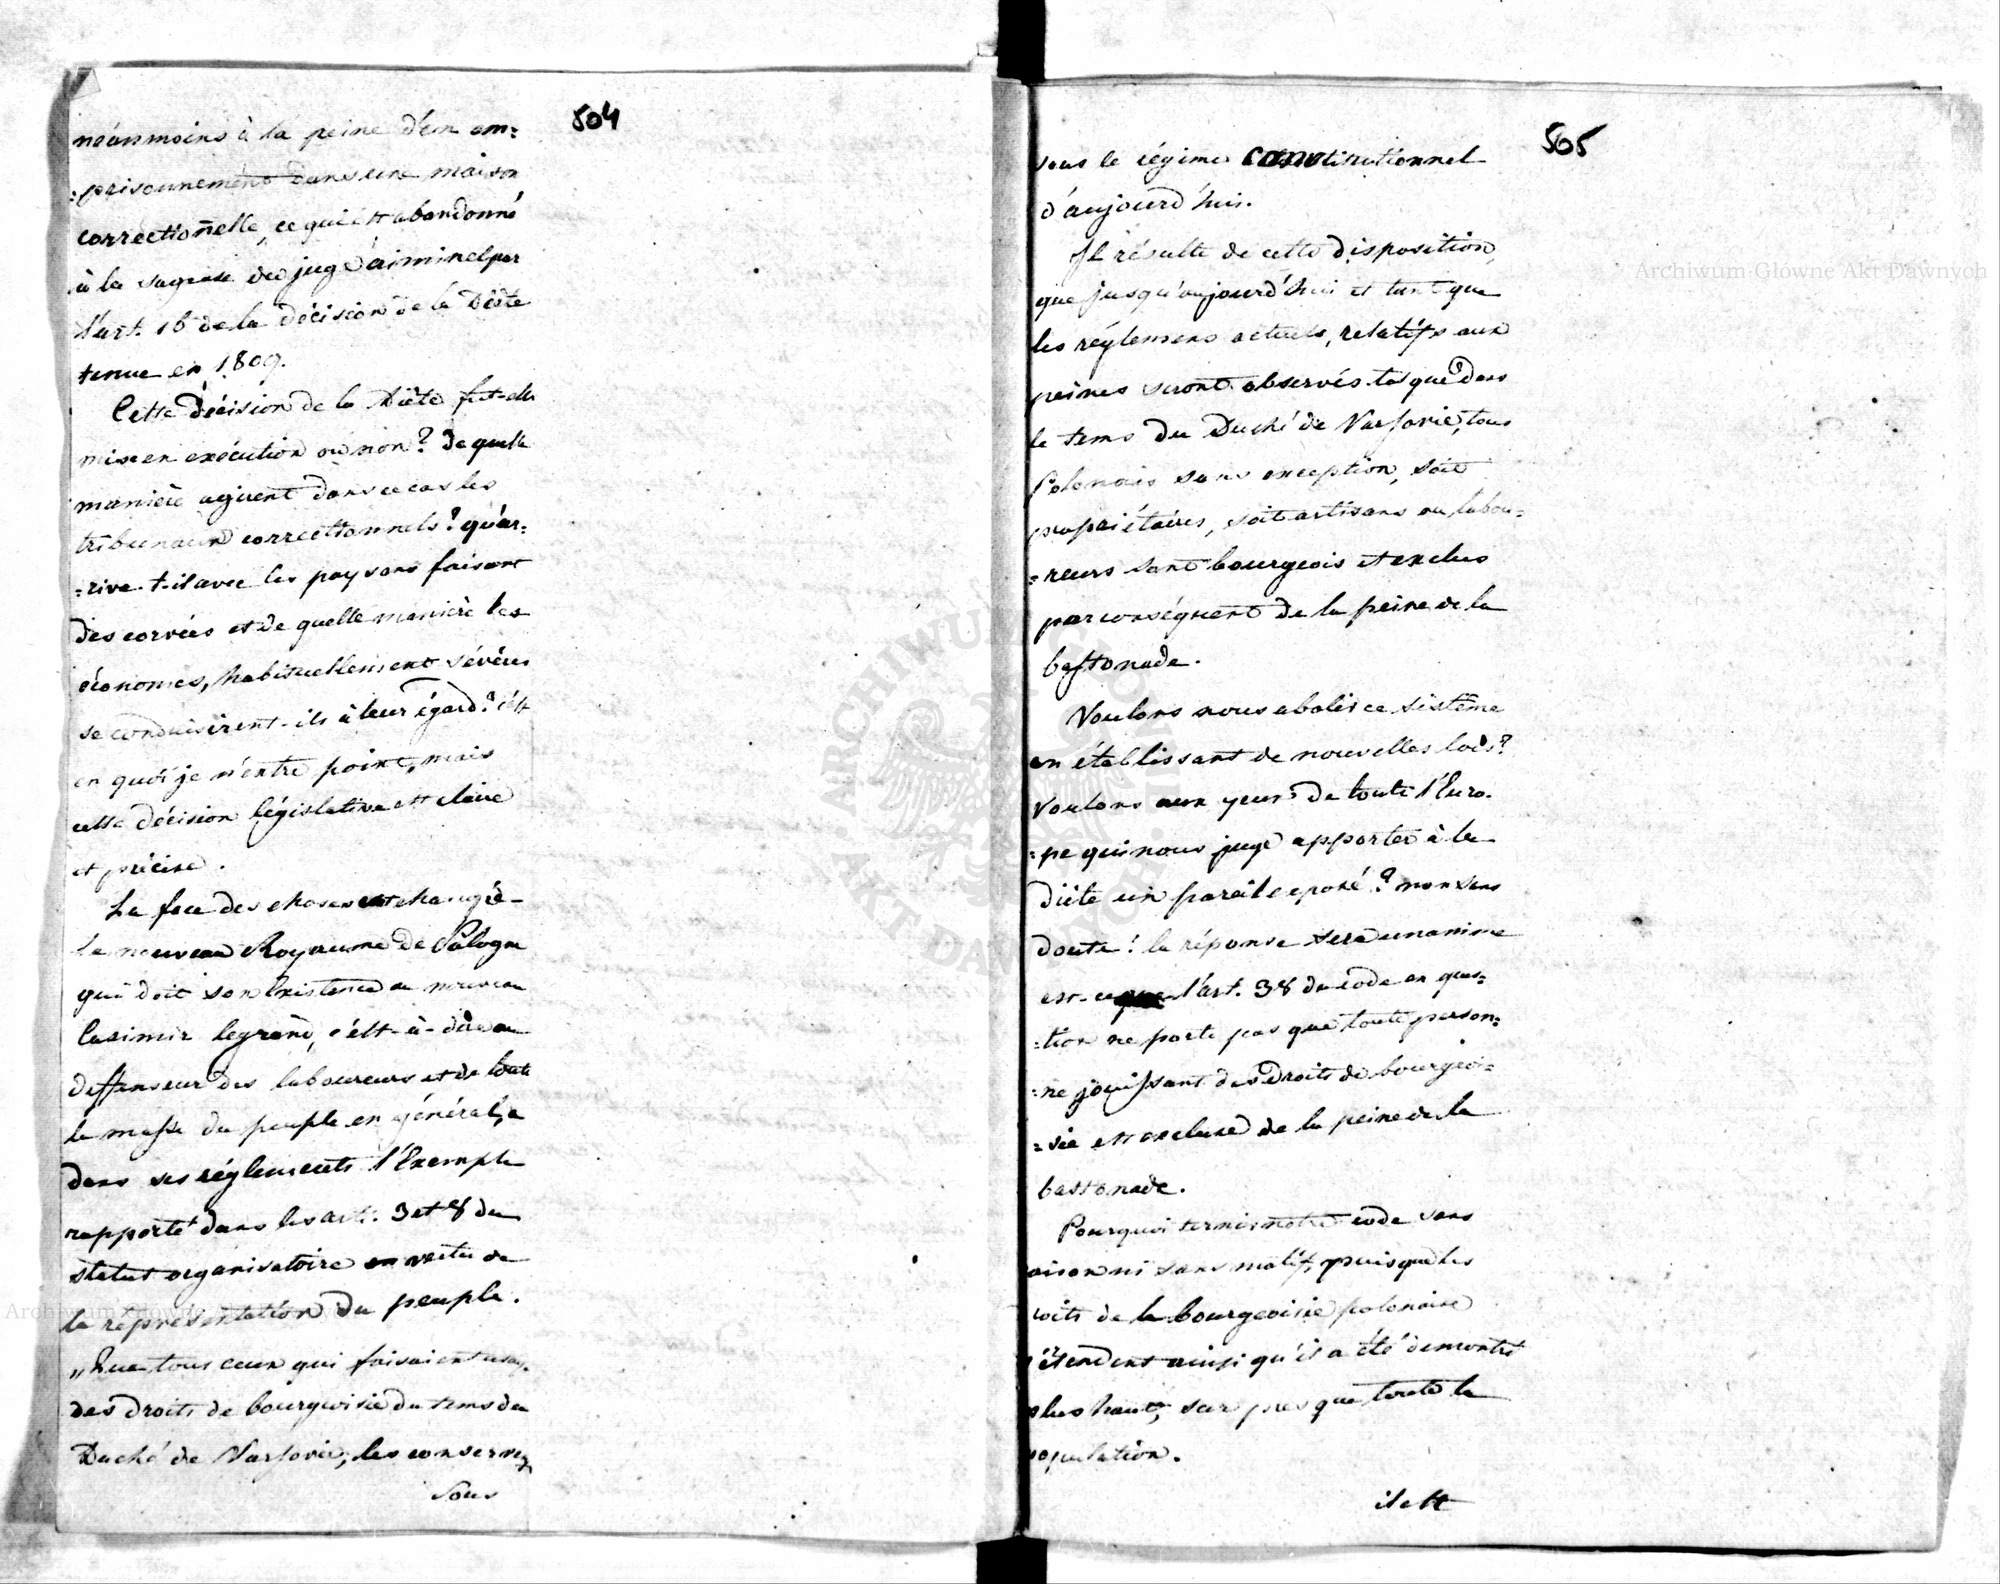 504
néanmoins à la peine d'em em=
=prisonnement dans une maison
correctionnelle, ce qui est abandonné
à la sagesse du juge criminel par
l'art. 16 de la décision de la Diète
tenue en 1809.
Cette décision de la Diète fut-elle
mise en exécution ou non? de quelle
manière agirent dans ce cas les
tribunaux correctionnels? qu'ar=
=rive-t-il avec les paysans faisant
des corvées et de quelle manière les
économes, habituellement sévères
se conduisirent-ils à leur égard? c'est
en quoi je n'entre point, mais
cette décision législative est claire
et précise.
La face des choses est changée -
le nouveau Royaume de Pologne
qui doit son Existence au nouveau
Casimir le grand, c'est-à-dire au
deffenseur des laboureurs et de toute
la masse du peuple en général, a
dans ses réglements l'Exemple
rapporté dans les art. 3 et 8 du
statut organisatoire en vertu de
la représentation du peuple.
„Que tous ceux qui faisaient usage
des droits de bourgeoisie du tems du
Duché de Varsovie, les conserve
sous
565
sous le régime constitutionnel
d'aujourd'hui.
Il résulte de cette disposition,
que jusqu'aujourd'hui et tant que
les réglemens actuels, relatifs aux
peines seront observés tels que dans
le tems du Duché de Varsovie, tous
Polonais sans exception, soit
propriétaires, soit artisans ou labou=
=reurs sont bourgeois et exclus
par conséquent de la peine de la
bastonade.
Voulons nous abolir ce sistême
en établissant de nouvelles lois?
Voulons aux yeux de toute l'Euro.
=pe qui nous juge apporter à la
diète un pareil exposé? non sans
doute! la réponse sera unanime
est-ce que l'art. 38 du code en ques=
=tion ne porte pas que toute person=
=ne jouissant des droits de bourgeoi=
=sie est excluse de la peine de la
bastonade.
Pourquoi ternir notre code sans
aison ni sans motif, puisque les
roits de la bourgeoisie polonaise
s'étendent ainsi qu'il a été demontré
plus haut, sur presque toute la
population.
il est
Archiwum Główne Akt Dawnych
Archiwum Główne Akt Dawnych
ARCHIWUM GŁÓWNE AKT DAWNYCH